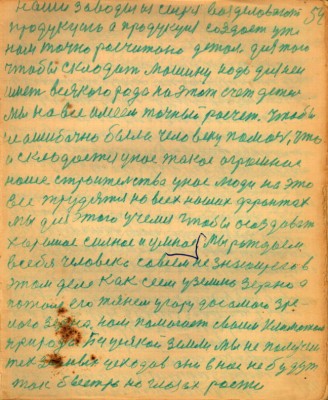 наши заводы из сырья возделовают 54
продукцыю а продукцыя создает уж
нам точно росчитано детом для того
чтобы сходит машину надо для ней
имет всякого рода на этот счет детом
мы на все имеем точный росчет. чтобы
не ошибочно была человеку помощ, что
и сходости у нас такое огромное
наше строительства у нас люди на это
все трудятся на всех наших фронтах
мы для этого учемся чтобы создават
хорошое силное и умное мы рождаем
в себя человека совсем не знающего в
этом деле как сеем у землю зерно а
потом его тянем угору до самого зре
лого зерна, нам помогает своим климатом
природа без усякой земли мы не получем
тех данных исходов они в нас не будут
так быстро на глазах рости